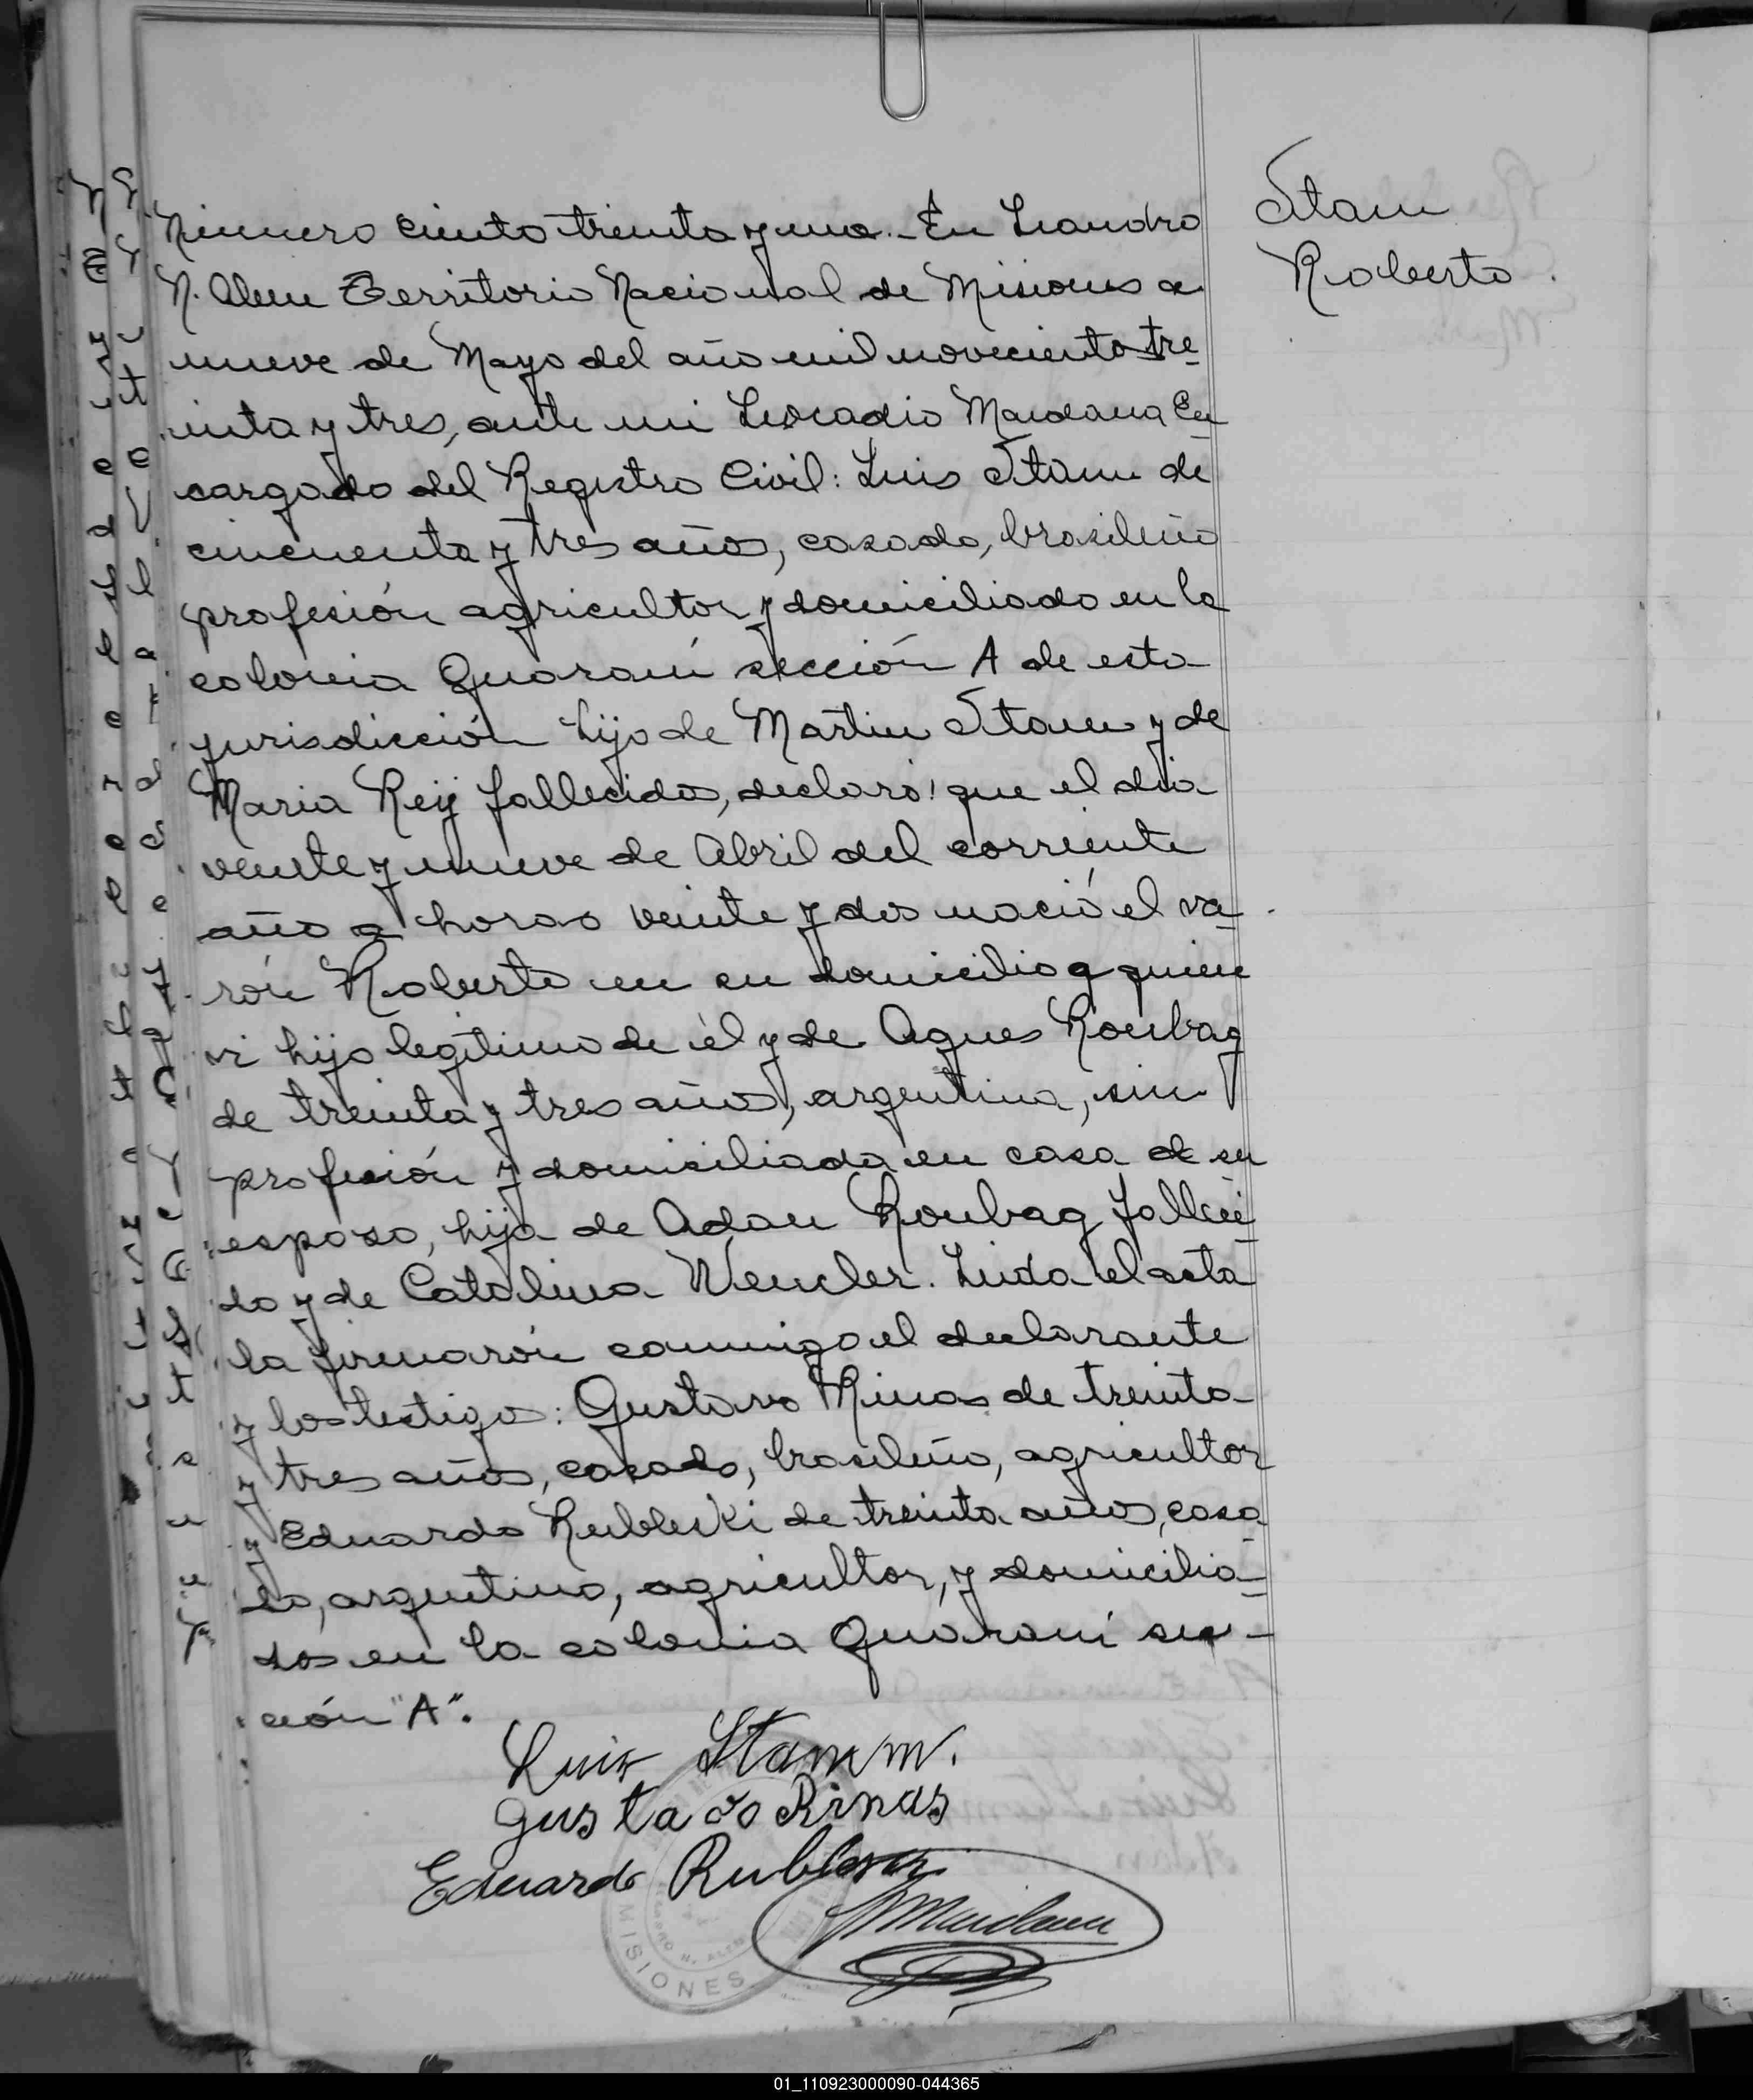 Stam
Roberto.
Número ciento treinta y uno.- En Leandro
N. Alem Territorio Nacional de Misiones a
nueve de Mayo del año mil novecientos tre-
inta y tres, ante mi Leocadio Maidana En-
cargado del Registro Civil: Luis Stam de
cincuenta y tres años, casado, brasileño
profesión agricultor y domiciliado en la
colonia Guaraní sección A de esta
jurisdicción hijo de Martin Stam y de
Maria Reij fallecidos, declaró: que el dia
veinte y nueve de Abril del corriente
año a horas veinte y dos nació el va-
rón Roberto en su domicilio a quien
vi hijo legítimo de él y de Agnes Roubag
de treinta y tres años, argentina, sin
profesión y domiciliada en casa de su
esposo, hija de Adan Roubag falleci-
do y de Catalina Wencler. Leida el acta
la firmarón conmigo el declarante
y los testigos: Gustavo Rinas de treinta
y tres años, casado, brasileño, agricultor
y Eduardo Rubleski de treinta años, casa-
do, argentino, agricultor, y domicilia-
dos en la colonia Guaraní sec-
ción "A".
Luis Stamm.
Gustavo Rinas
Eduardo
MISIONES
01_110923000090-044365